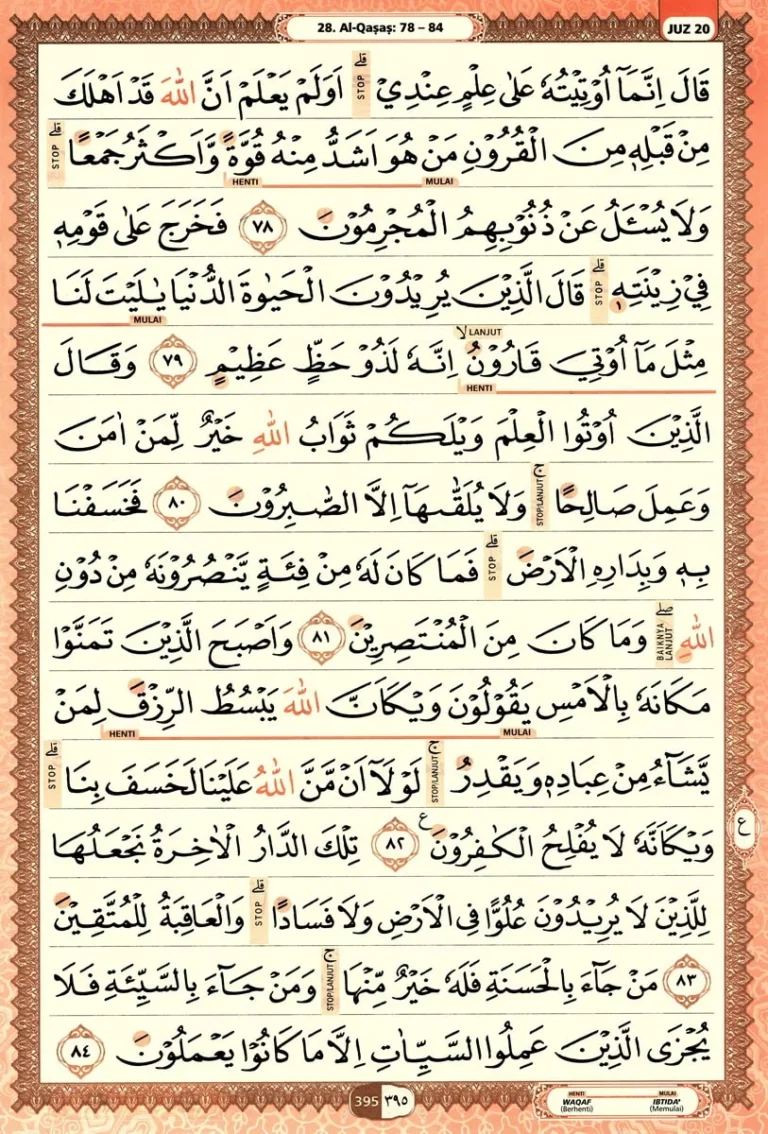 28. Al-Qaṣaṣ: 78 – 84
JUZ 20
قَالَ اِنَّمَآ اُوْتِيْتُهٗ عَلٰى عِلْمٍ عِنْدِيْ ۗ اَوَلَمْ يَعْلَمْ اَنَّ اللّٰهَ قَدْ اَهْلَكَ
STOP
مِنْ قَبْلِهٖ مِنَ الْقُرُوْنِ مَنْ هُوَ اَشَدُّ مِنْهُ قُوَّةً وَّاَكْثَرُ جَمْعًا ۗ
STOP
MULAI HENTI
وَلَا يُسْـَٔلُ عَنْ ذُنُوْبِهِمُ الْمُجْرِمُوْنَ ٧٨ فَخَرَجَ عَلٰى قَوْمِهٖ
فِيْ زِيْنَتِهٖ ۗ قَالَ الَّذِيْنَ يُرِيْدُوْنَ الْحَيٰوةَ الدُّنْيَا يٰلَيْتَ لَنَا
STOP
MULAI
LANJUT
مِثْلَ مَآ اُوْتِيَ قَارُوْنُ ۙ اِنَّهٗ لَذُوْ حَظٍّ عَظِيْمٍ ٧٩ وَقَالَ
HENTI
الَّذِيْنَ اُوْتُوا الْعِلْمَ وَيْلَكُمْ ثَوَابُ اللّٰهِ خَيْرٌ لِّمَنْ اٰمَنَ
وَعَمِلَ صَالِحًا ۚ وَلَا يُلَقّٰىهَآ اِلَّا الصّٰبِرُوْنَ ٨٠ فَخَسَفْنَا
STOP/LANJUT
بِهٖ وَبِدَارِهِ الْاَرْضَ ۗ فَمَا كَانَ لَهٗ مِنْ فِئَةٍ يَّنْصُرُوْنَهٗ مِنْ دُوْنِ
STOP
اللّٰهِ ۖ وَمَا كَانَ مِنَ الْمُنْتَصِرِيْنَ ٨١ وَاَصْبَحَ الَّذِيْنَ تَمَنَّوْا
BAIKNYA LANJUT
مَكَانَهٗ بِالْاَمْسِ يَقُوْلُوْنَ وَيْكَاَنَّ اللّٰهَ يَبْسُطُ الرِّزْقَ لِمَنْ
MULAI HENTI
يَّشَاۤءُ مِنْ عِبَادِهٖ وَيَقْدِرُ ۚ لَوْلَآ اَنْ مَّنَّ اللّٰهُ عَلَيْنَا لَخَسَفَ بِنَا ۗ
STOP/LANJUT
STOP
وَيْكَاَنَّهٗ لَا يُفْلِحُ الْكٰفِرُوْنَ ࣖ ٨٢ تِلْكَ الدَّارُ الْاٰخِرَةُ نَجْعَلُهَا
ع
لِلَّذِيْنَ لَا يُرِيْدُوْنَ عُلُوًّا فِى الْاَرْضِ وَلَا فَسَادًا ۗ وَالْعَاقِبَةُ لِلْمُتَّقِيْنَ
STOP
٨٣ مَنْ جَاۤءَ بِالْحَسَنَةِ فَلَهٗ خَيْرٌ مِّنْهَا ۚ وَمَنْ جَاۤءَ بِالسَّيِّئَةِ فَلَا
STOP/LANJUT
يُجْزَى الَّذِيْنَ عَمِلُوا السَّيِّاٰتِ اِلَّا مَا كَانُوْا يَعْمَلُوْنَ ٨٤
395 ٣٩٥
HENTI MULAI
WAQAF IBTIDA'
(Berhenti) (Memulai)